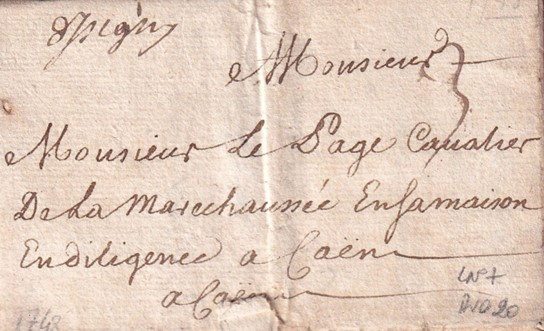 d'Isigny
Monsieur
Monsieur Le Page Caualier
De La Marechaussée Ensamaison
En diligence a Caën
a Caën
1748
IND 20